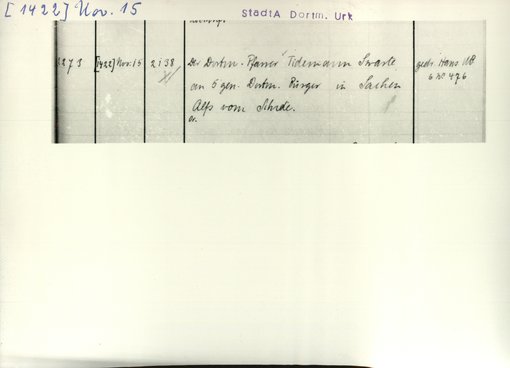 [1422] Nov. 15
StadtA Dortm. Urk
2273 [1422] Nov. 15 2138 Der Dortm. Pfarrer Tidemann Swarte gedr. Hans UB
an 5 gen. Dortm. Bürger in Sachen 6 No 476
Alfs vom Schide.